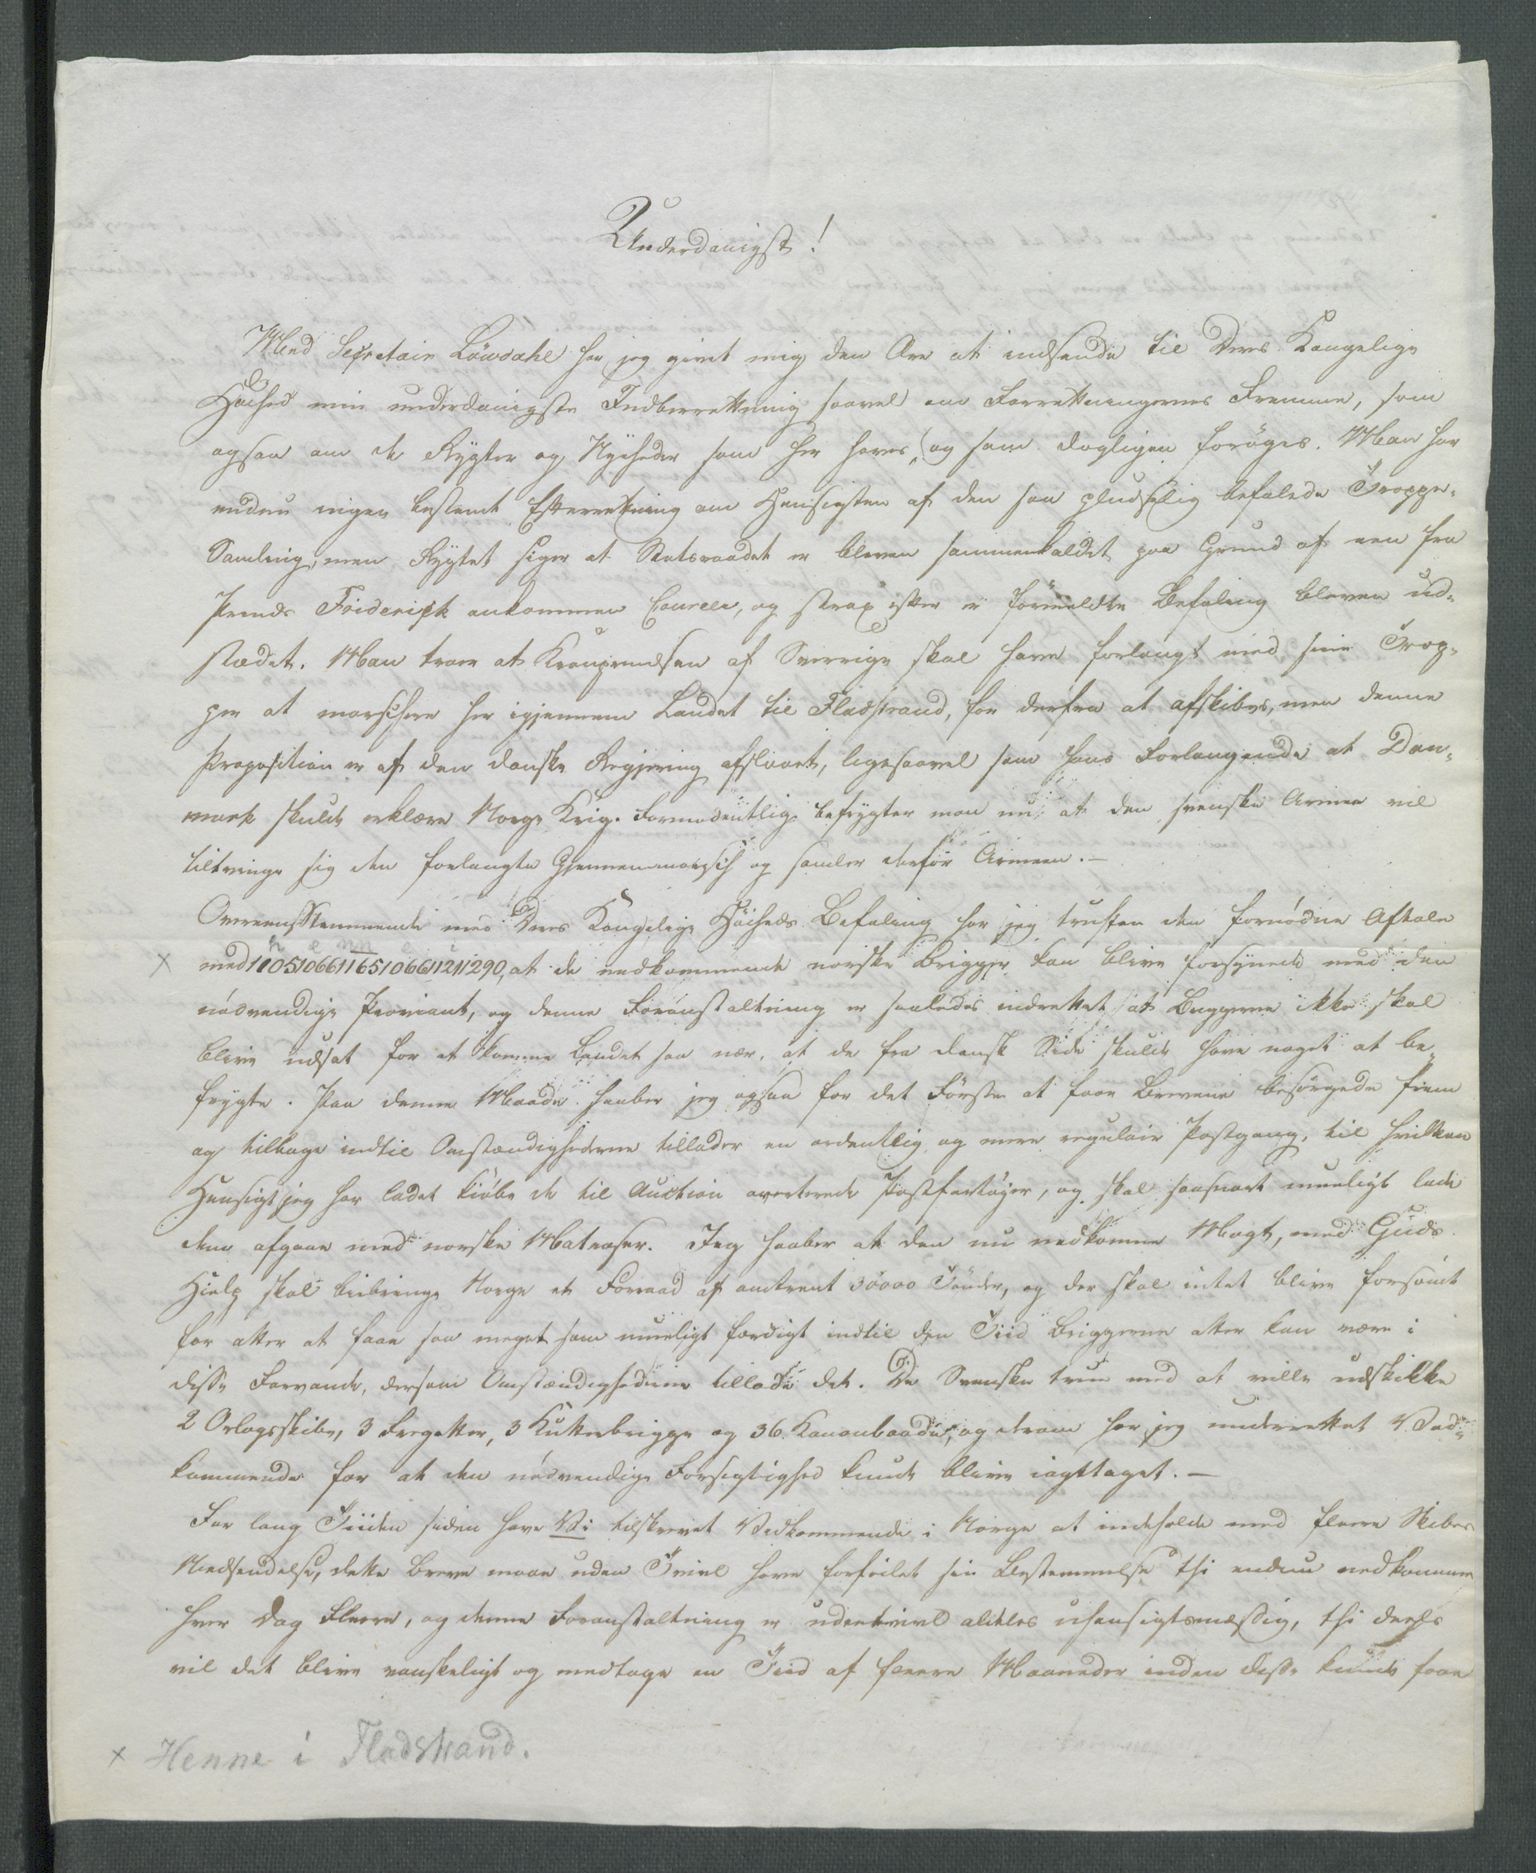 Underdanigst!
Med Secretair Löwdahl har jeg givet mig den Ære at indsende til Deres Kongelige
Höihed min underdanigste Indberettning saavel om Forrettningernes Fremme, som
ogsaa om de Rygter og Nyheder som her haves, og som dagligen foröges. Man har
endnu ingen bestemt Efterretning om Hensigten af den saa pludselig befalede Troppe-
Samling, men Rygtet siger at Statsraadet er bleven sammenkaldet paa Grund af een fra
Prinds Friderich ankommen Coureer, og strax efter er formeldte Befaling bleven ud-
stædet. Man troer at Kronprindsen af Sverrige skal have forlangt med sine Trop-
per at marschere her igjennem Landet til Fladstrand, for derfra at afskibes, men denne
Proposition er af den danske Regjering afslaaet, ligesaavel som hans Forlangende at Dan-
mark skulde erklære Norge Krig. Formodentlig befrygter man nu at den svenske Armee vil
tiltvinge sig den forlangte Gjennemmarsch og samler derfor Armeen. —
Overeensstemmende med Deres Kongelige Höiheds Befaling har jeg truffen den fornödne Aftale
h e nn e i
x med 1105106611651066121290, at de nedkommende norske Brigger kan blive forsynede med den
nödvendige Proviant, og denne Foranstaltning er saaledes indrettet at Briggerne ikke skal
blive udsat for at komme Landet saa nær, at de fra dansk Side skulde have noget at be-
frygte. Paa denne Maade haaber jeg ogsaa for det Förste at faae Brevene besörgede frem
og tilbage indtil Omstændighederne tillader en ordentlig og mere regulair Postgang, til hvilken
Hensigt jeg har ladet kiöbe de til Auction averterede Postfartöjer, og skal saasnart mueligt lade
dem afgaae med norske Matroser. Jeg haaber at den nu nedkomne Magt, med Guds
Hielp skal bibringe Norge et Forraad af omtrent 30000 Tönder, og der skal intet blive forsömt
for atter at faae saa meget som mueligt færdigt indtil den Tiid Briggerne atter kan være i
disse Farvande, dersom Omstændighederne tillade det. De Svenske true med at ville udskikke
2 Orlogsskibe, 3 Fregatter, 3 Kutterbrigge og 36 Kanonbaade, og derom har jeg underrettet Ved-
kommende for at den nödvendige Forsigtighed kunde blive iagttaget. —
For lang Tiiden siden have Vi tilskrevet Vedkommende i Norge at indeholde med flere Skibes
Nedsendelse, dette Brev maae uden Tvivl have forfeilet sin Bestemmelse thi endnu nedkomme
hver Dag Flere, og denne Foranstaltning er udentvivl aldeles uhensigtsmæssig, thi deels
vil det blive vanskeligt og medtage en Tiid af flere Maaneder inden disse kunde faae
x Henne i Fladstrand.